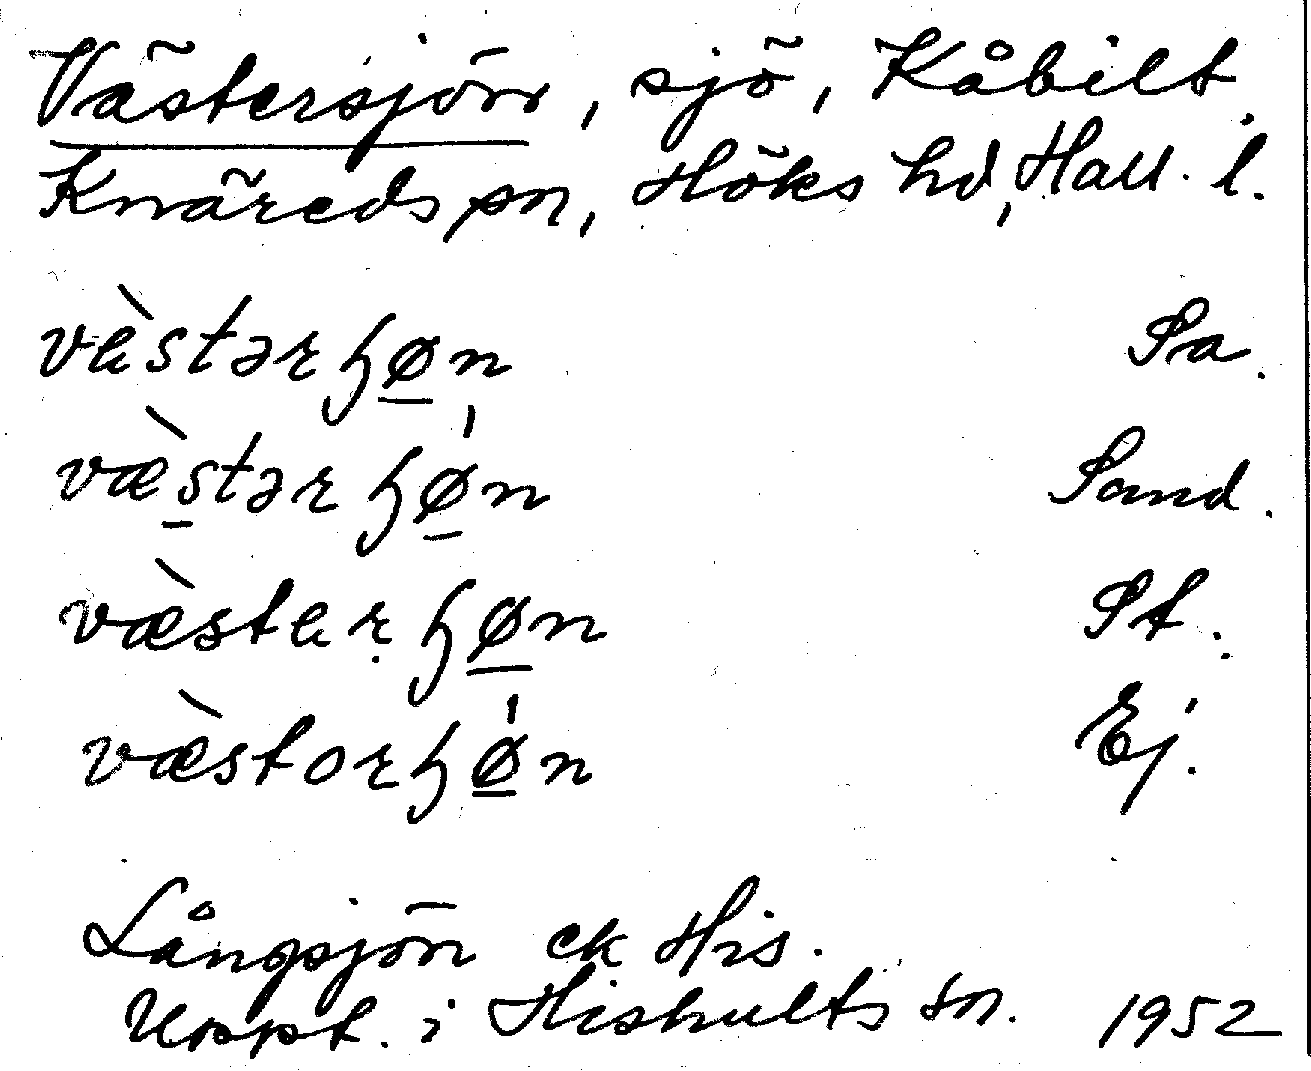 Västersjön, sjö, Kåbilt,
Knäreds sn, Höks hd, Hall. l.
vɛ̀stərɧøn Sa.
væ̀stərɧø̍n Sand.
væ̀stɛrɧøn St.
væ̀storɧø̍n Ej.
Långsjön ek His.
Uppt. i Hishults sn. 1952